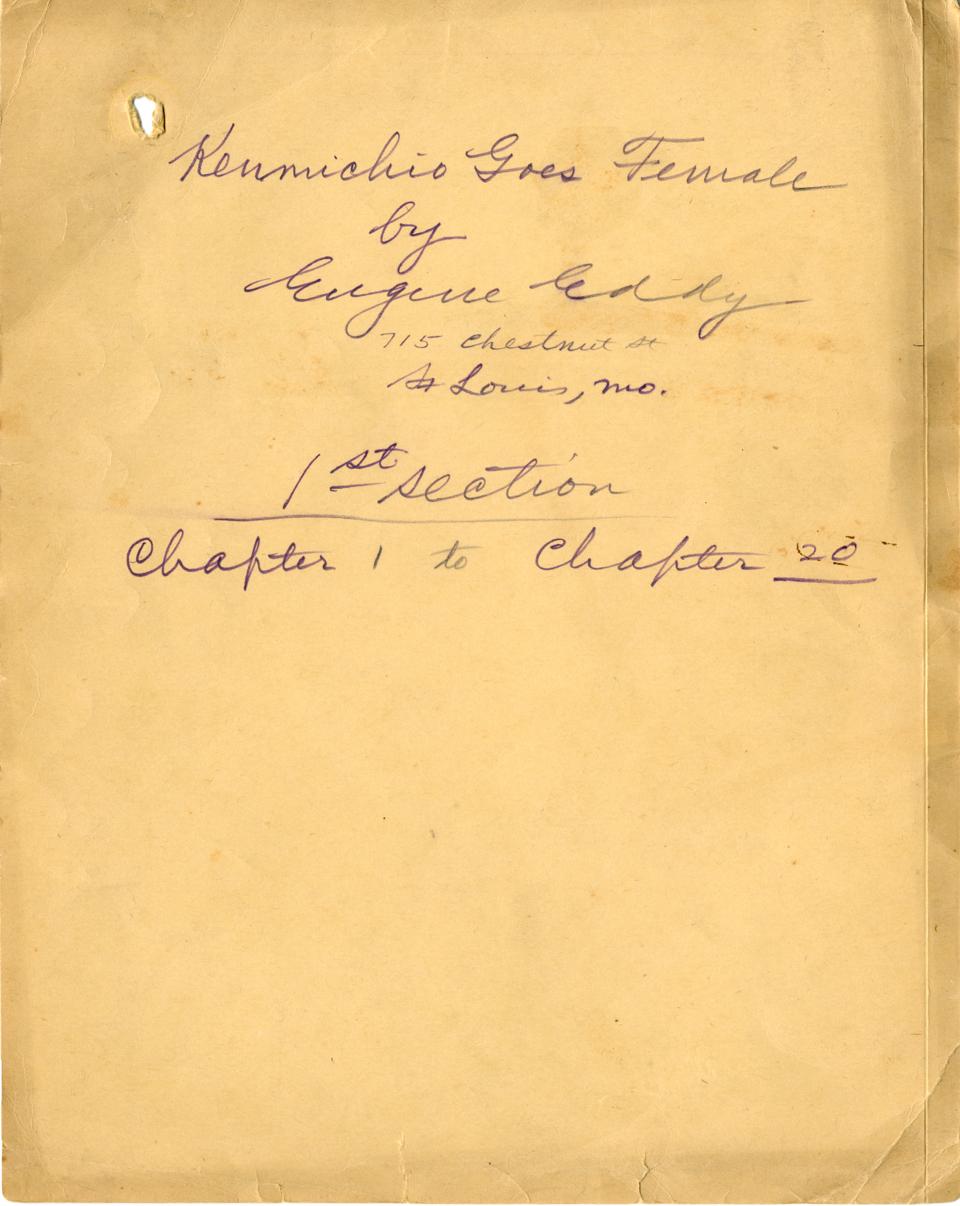 Kenmichio Goes Female
by
Eugene Eddy
715 Chestnut St
St Louis, Mo.
1st section
Chapter 1 to Chapter 20